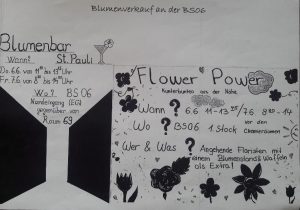 Blumenverkauf an der BS06
Blumenbar
St. Pauli
Wann?
Do. 6.6. von 11 bis 13 Uhr
Fr. 7.6 von 8 bis 14 Uhr
Wo? BS 06
Nordeingang (EG)
gegenüber von
Raum 69
Flower Power
Kunterbuntes aus der Nähe
Wann ? 6.6 11-13 / 7.6 9 - 14
vor den
Wo ? BS06 1. Stock Chemieräumen
Wer & Was ? Angehende Floristen mit
einem Blumenstand & Waffeln
als Extra!